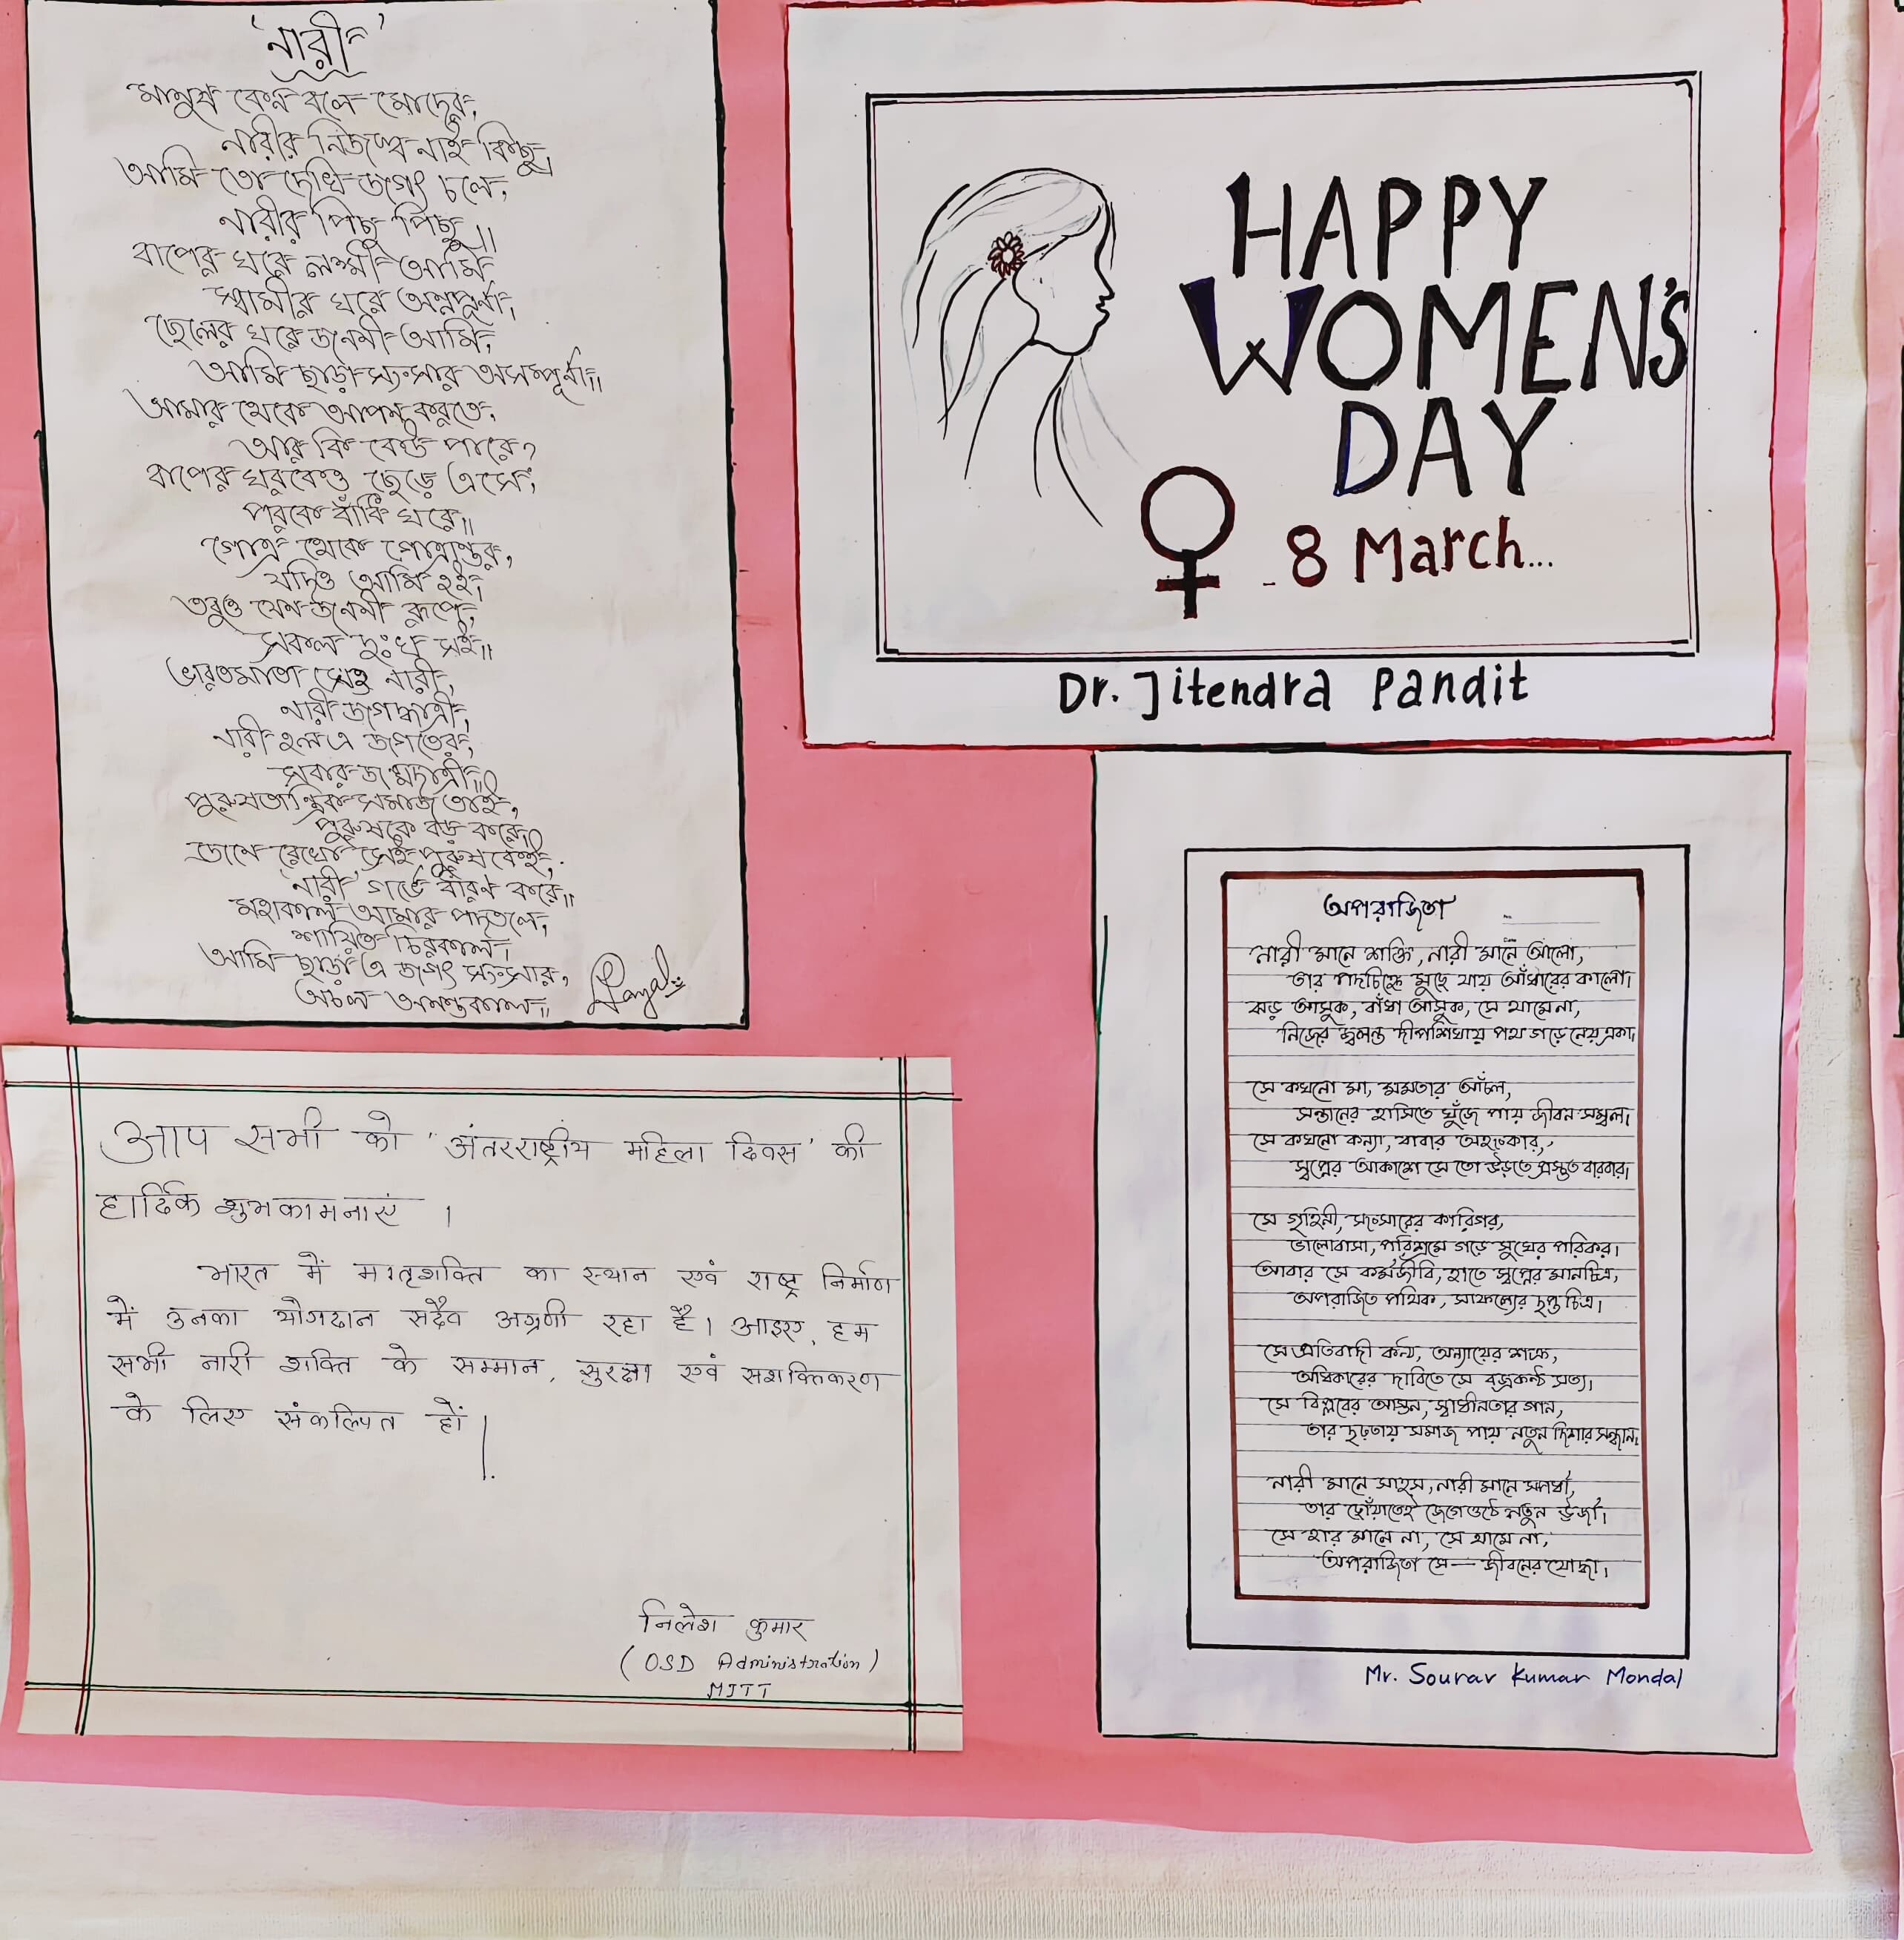 'নারী'
মানুষ কেন বলে মোদের,
নারীর নিজস্ব নাই কিছু,
আমি তো দেখি জগৎ চলে,
নারীর পিছু পিছু॥
বাপের ঘরে লক্ষ্মী আমি
স্বামীর ঘরে অন্নপূর্ণা,
ছেলের ঘরে জননী আমি,
আমি ছাড়া সংসার অসম্পূর্ণা॥
আমার থেকে আপন করতে,
আর কি কেউ পারে?
বাপের ঘরকেও ছেড়ে এসে,
পরকে বাঁধি ঘরে॥
গোত্র থেকে গোত্রান্তর,
যদিও আমি হই,
তবুও যেন জননী রূপে,
সকল দুঃখ সই॥
ভারতমাতা সেও নারী,
নারী জগদ্ধাত্রী,
নারী হল এ জগতের,
সবার জন্মদাত্রী॥
পুরুষতান্ত্রিক সমাজ তাই,
পুরুষকে বড় করে,
জেনে রেখো সেই পুরুষকেই,
'নারী' গর্ভে ধারণ করে॥
মহাকাল আমার পদতলে,
শায়িত চিরকাল।
আমি ছাড়া এ জগৎ সংসার,
অচল অনন্তকাল॥
Payal
HAPPY
WOMEN'S
DAY
8 March...
Dr. Jitendra Pandit
आप सभी को "अंतरराष्ट्रीय महिला दिवस' की
हार्दिक शुभकामनाएं ।
भारत में मातृशक्ति का स्थान एवं राष्ट्र निर्माण
में उनका योगदान सदैव अग्रणी रहा है। आइए, हम
सभी नारी शक्ति के सम्मान, सुरक्षा एवं सशक्तिकरण
के लिए संकल्पित हों।
निलेश कुमार
(OSD Administration)
MITT
অপরাজিতা
নারী মানে শক্তি, নারী মানে আলো,
তার পদচিহ্নে মুছে যায় আঁধারের কালো।
ঝড় আসুক, বাঁধা আসুক, সে থামেনা,
নিজের জ্বলন্ত দীপশিখায় পথ গড়ে নেয় একা।
সে কখনো মা, মমতার আঁচল,
সন্তানের হাসিতে খুঁজে পায় জীবন সম্বল।
সে কখনো কন্যা, বাবার অহংকার,
স্বপ্নের আকাশে সে তো উড়তে প্রস্তুত বারবার।
সে গৃহিনী, সংসারের কারিগর,
ভালোবাসা, পরিশ্রমে গড়ে সুখের পরিকর।
আবার সে কর্মজীবি, হাতে স্বপ্নের মানচিত্র,
অপরাজিত পথিক, সাফল্যের দৃপ্ত চিত্র।
সে প্রতিবাদী কন্ঠ, অন্যায়ের শত্রু,
অধিকারের দাবিতে সে বজ্রকন্ঠ সত্য।
সে বিপ্লবের আগুন, স্বাধীনতার গান,
তার দৃঢ়তায় সমাজ পায় নতুন দিশার সন্ধান।
নারী মানে সাহস, নারী মানে স্পর্ধা,
তার ছোঁয়াতেই জেগে ওঠে নতুন ঊর্জা।
সে হার মানে না, সে থামে না,
অপরাজিতা সে— জীবনের যোদ্ধা।
Mr. Sourav Kumar Mondal